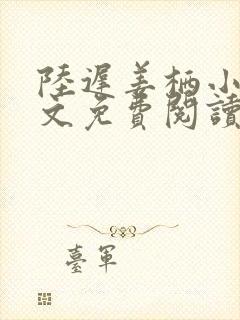 陸遲姜栖小
文免費閱讀
臺軍